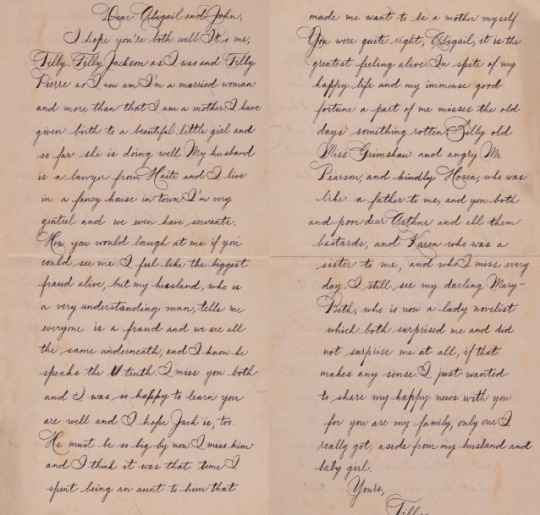 Dear Abigail and John,
I hope you're both well It's me,
Tilly Tilly Jackson as I was and Tilly
Pierre as I now am I'm a married woman
and more than that I am a mother I have
given birth to a beautiful little girl and
so far she is doing well My husband
is a lawyer from Haiti and I live
in a fancy house in town I'm very
genteel and we even have servants.
How you would laugh at me if you
could see me I feel like the biggest
fraud alive, but my husband, who is
a very understanding man, tells me
everyone is a fraud and we are all
the same underneath, and I know he
speaks the truth I miss you both
and I was so happy to learn you
are well and I hope Jack is, too.
He must be so big by now I miss him
and I think it was that time I
spent being an aunt to him that
made me want to be a mother myself
You were quite right, Abigail, it is the
greatest feeling alive In spite of my
happy life and my immense good
fortune a part of me misses the old
days something rotten Silly old
Miss Grimshaw and angry Mr
Pearson, and kindly Hosea, who was
like a father to me, and you both
and poor dear Arthur and all them
bastards, and Karen who was a
sister to me, and who I miss every
day. I still see my darling Mary-
Beth, who is now a lady novelist
which both surprised me and did
not surprise me at all, if that
makes any sense I just wanted
to share my happy news with you
for you are my family, only one I
really got, aside from my husband and
baby girl.
Yours,
Tilly